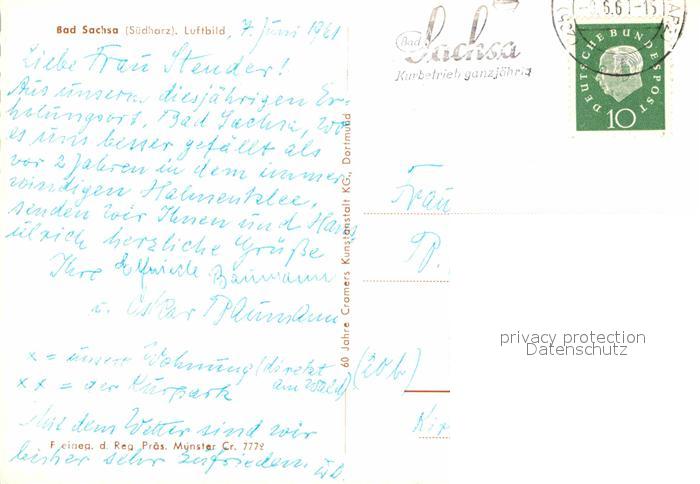 Bad Sachsa (Südharz). Luftbild, 7. Juni 1961
Liebe Frau Stender!
Aus unserm diesjährigen Er-
holungsort, Bad Sachsa, wo
es uns besser gefällt als
vor 2 Jahren in dem immer
windigen Hahnenklee,
senden wir Ihnen und Hans
Ulrich herzliche Grüße
Ihre Elfriede Baumann
u. Oskar Baumann
x = unsere Wohnung (direkt
am Wald)
xx = der Kurpark
Mit dem Wetter sind wir
bisher sehr zufrieden.
Freigeg. d. Reg. Präs. Münster Cr. 7772
60 Jahre Cramers Kunstanstalt KG., Dortmund
Bad Sachsa
Kurbetrieb ganzjährig
6.61-15
DEUTSCHE BUNDESPOST
10
Frau
(20b)
privacy protection
Datenschutz